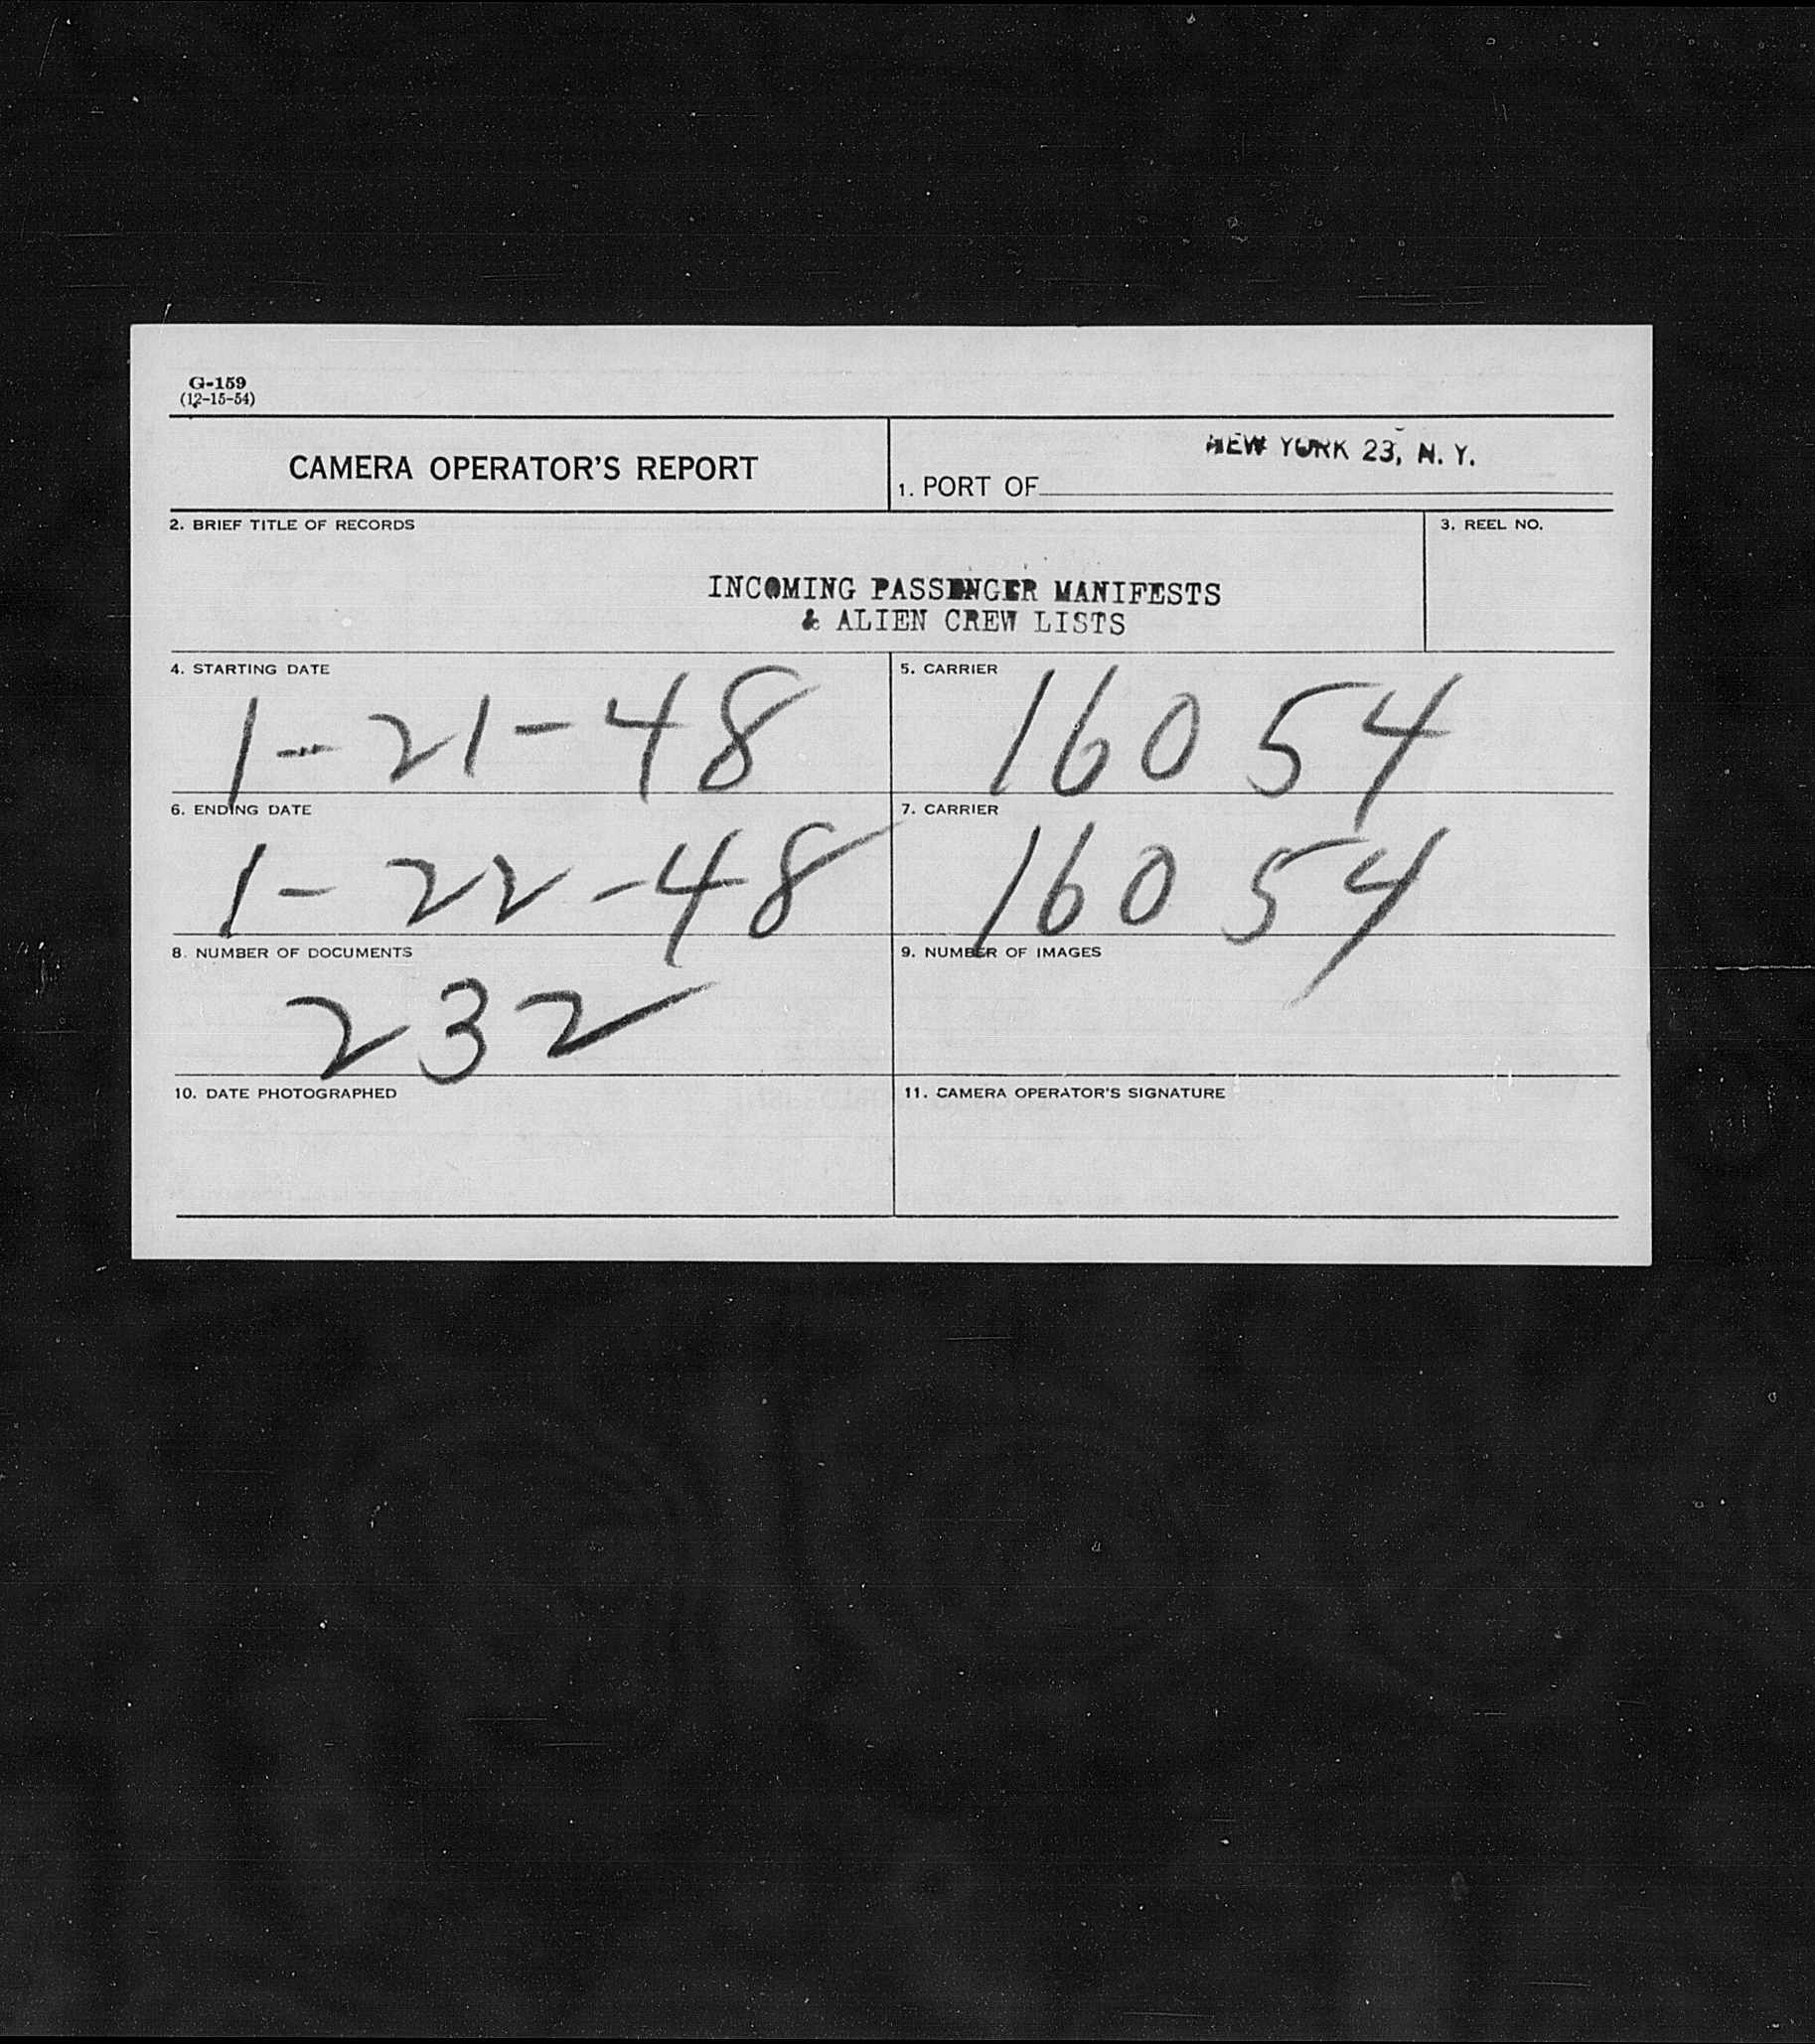 G-159
(12-15-54)
CAMERA OPERATOR'S REPORT
NEW YORK 23, N. Y.
1. PORT OF
2. BRIEF TITLE OF RECORDS
3. REEL NO.
INCOMING PASSENGER MANIFESTS
& ALIEN CREW LISTS
4. STARTING DATE
1-21-48
5. CARRIER
16054
6. ENDING DATE
1-22-48
7. CARRIER
16054
8. NUMBER OF DOCUMENTS
232
9. NUMBER OF IMAGES
10. DATE PHOTOGRAPHED
11. CAMERA OPERATOR'S SIGNATURE